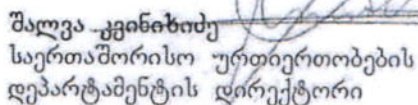 შალვა კვინიხიძე
საერთაშორისო ურთიერთობების
დეპარტამენტის დირექტორი